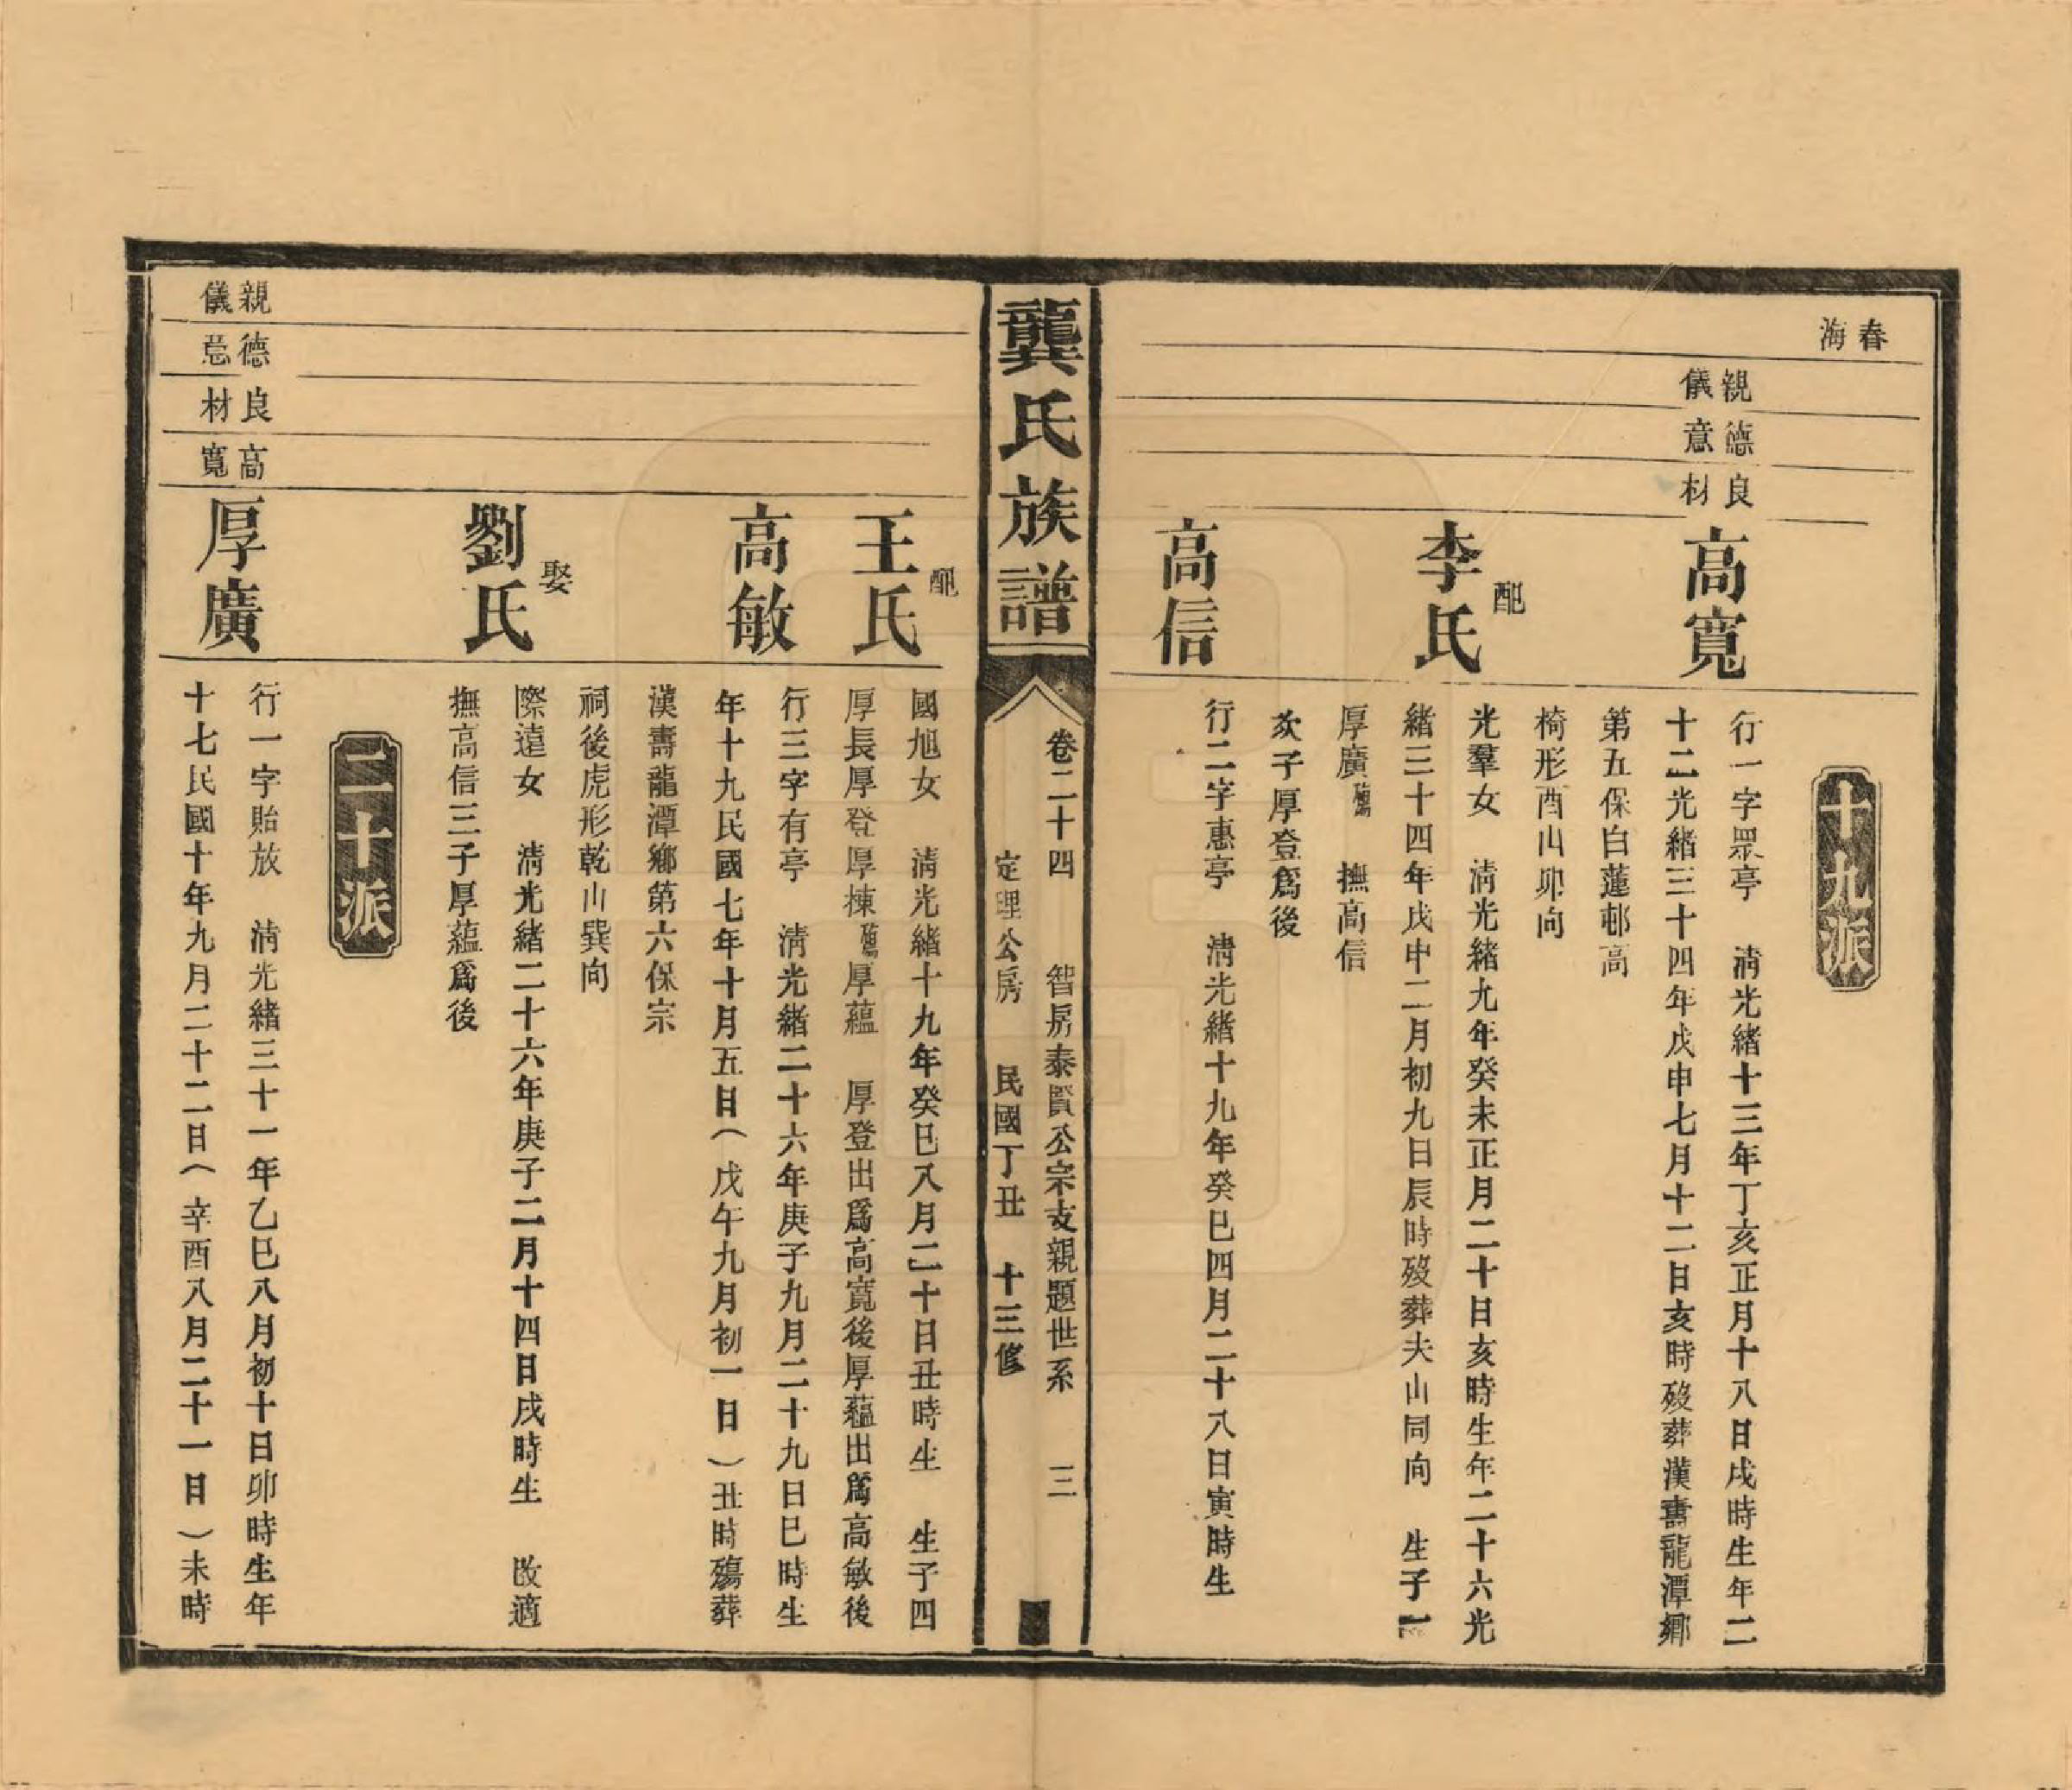 春
海
十九派
親德良
儀意材
高寬
行一字眾亭　清光緒十三年丁亥正月十八日戌時生年二
十二光緒三十四年戊申七月十二日亥時歿葬漢壽龍潭鄉
第五保白蓮邨高
椅形酉山卯向
配
李氏
光羣女　清光緒九年癸未正月二十日亥時生年二十六光
緒三十四年戊申二月初九日辰時歿葬夫山同向　生子一
厚廣殤　撫高信
次子厚登爲後
高信
行二字惠亭　清光緒十九年癸巳四月二十八日寅時生
龔氏族譜
卷二十四　智房泰賢公宗支親題世系　三
定理公房　民國丁丑　十三修
配
王氏
國旭女　清光緒十九年癸巳八月二十日丑時生　生子四
厚長厚登厚棟殤厚蘊　厚登出爲高寬後厚蘊出爲高敏後
高敏
行三字有亭　清光緒二十六年庚子九月二十九日巳時生
年十九民國七年十月五日（戊午九月初一日）丑時殤葬
漢壽龍潭鄉第六保宗
祠後虎形乾山巽向
娶
劉氏
際遠女　清光緒二十六年庚子二月十四日戌時生　改適
撫高信三子厚蘊爲後
二十派
親德良高
儀意材寬
厚廣
行一字貽放　清光緒三十一年乙巳八月初十日卯時生年
十七民國十年九月二十二日（辛酉八月二十一日）未時